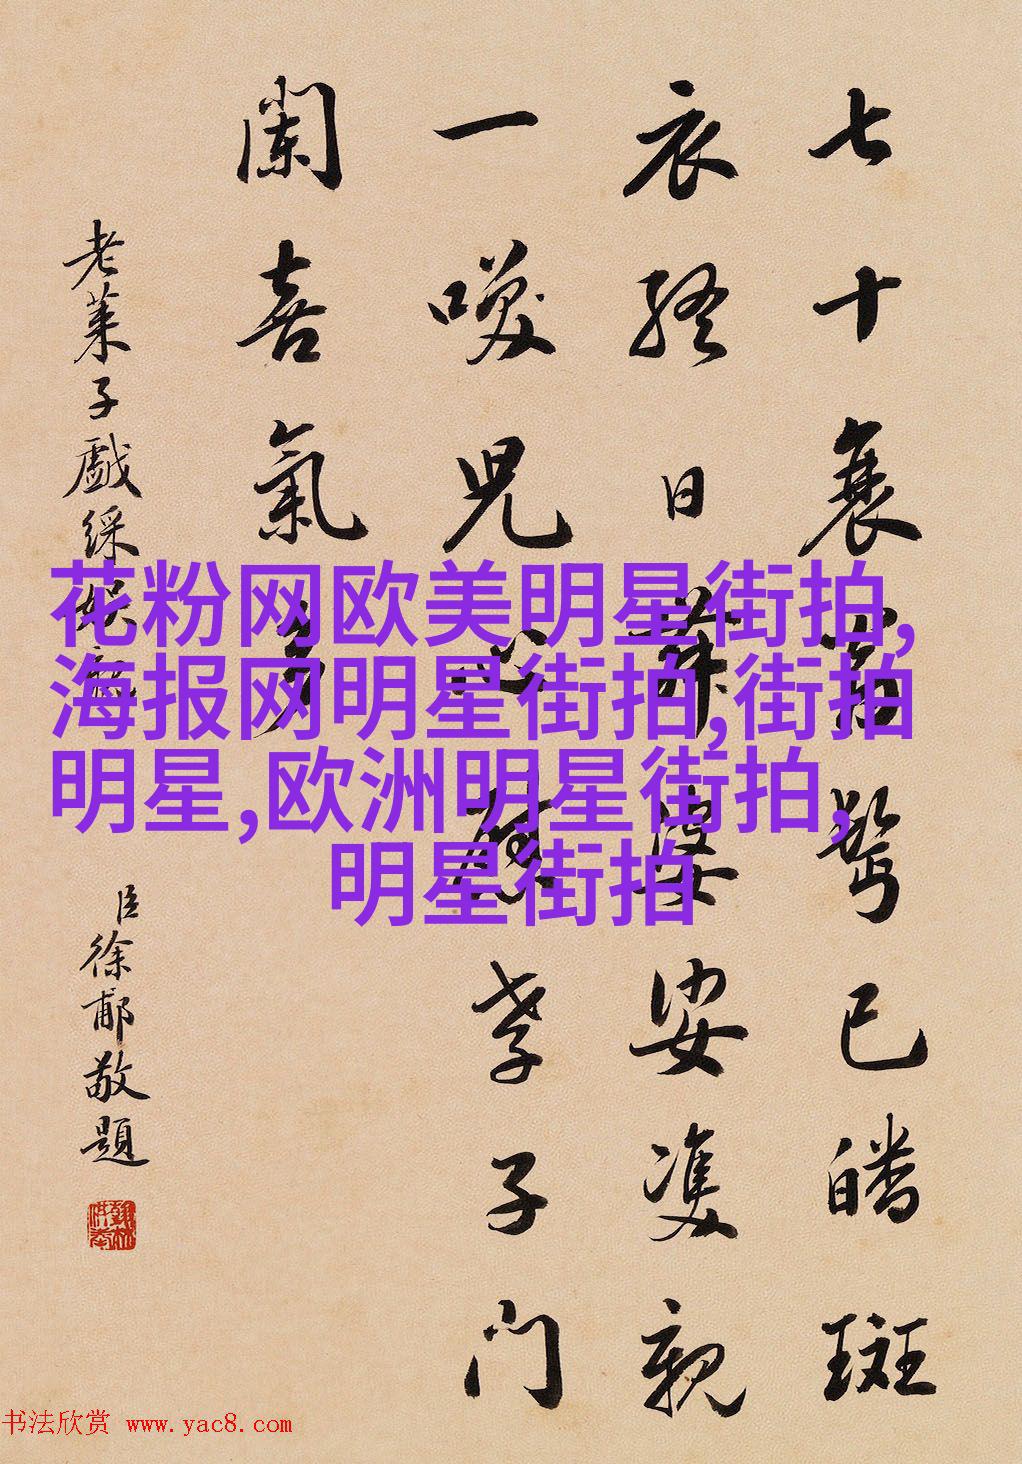 七十衰鬢已皤斑
衣終日舞婆娑雙親
一喚兒心慰孝子門
闌喜氣多
老萊子戲綵娛親
臣徐郙敬題
花粉网欧美明星街拍,
海报网明星街拍,街拍
明星,欧洲明星街拍,
明星街拍
书法欣赏 www.yac8.com